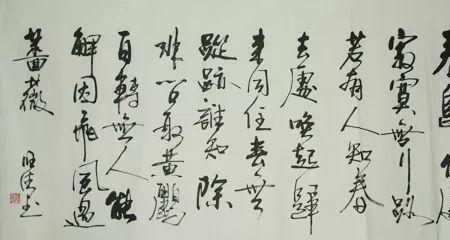 寂寞無行路
若有人知春
去處喚起歸
来同住春無
蹤跡誰知除
非问取黄鸝
百轉無人能
解因飛風過
薔薇